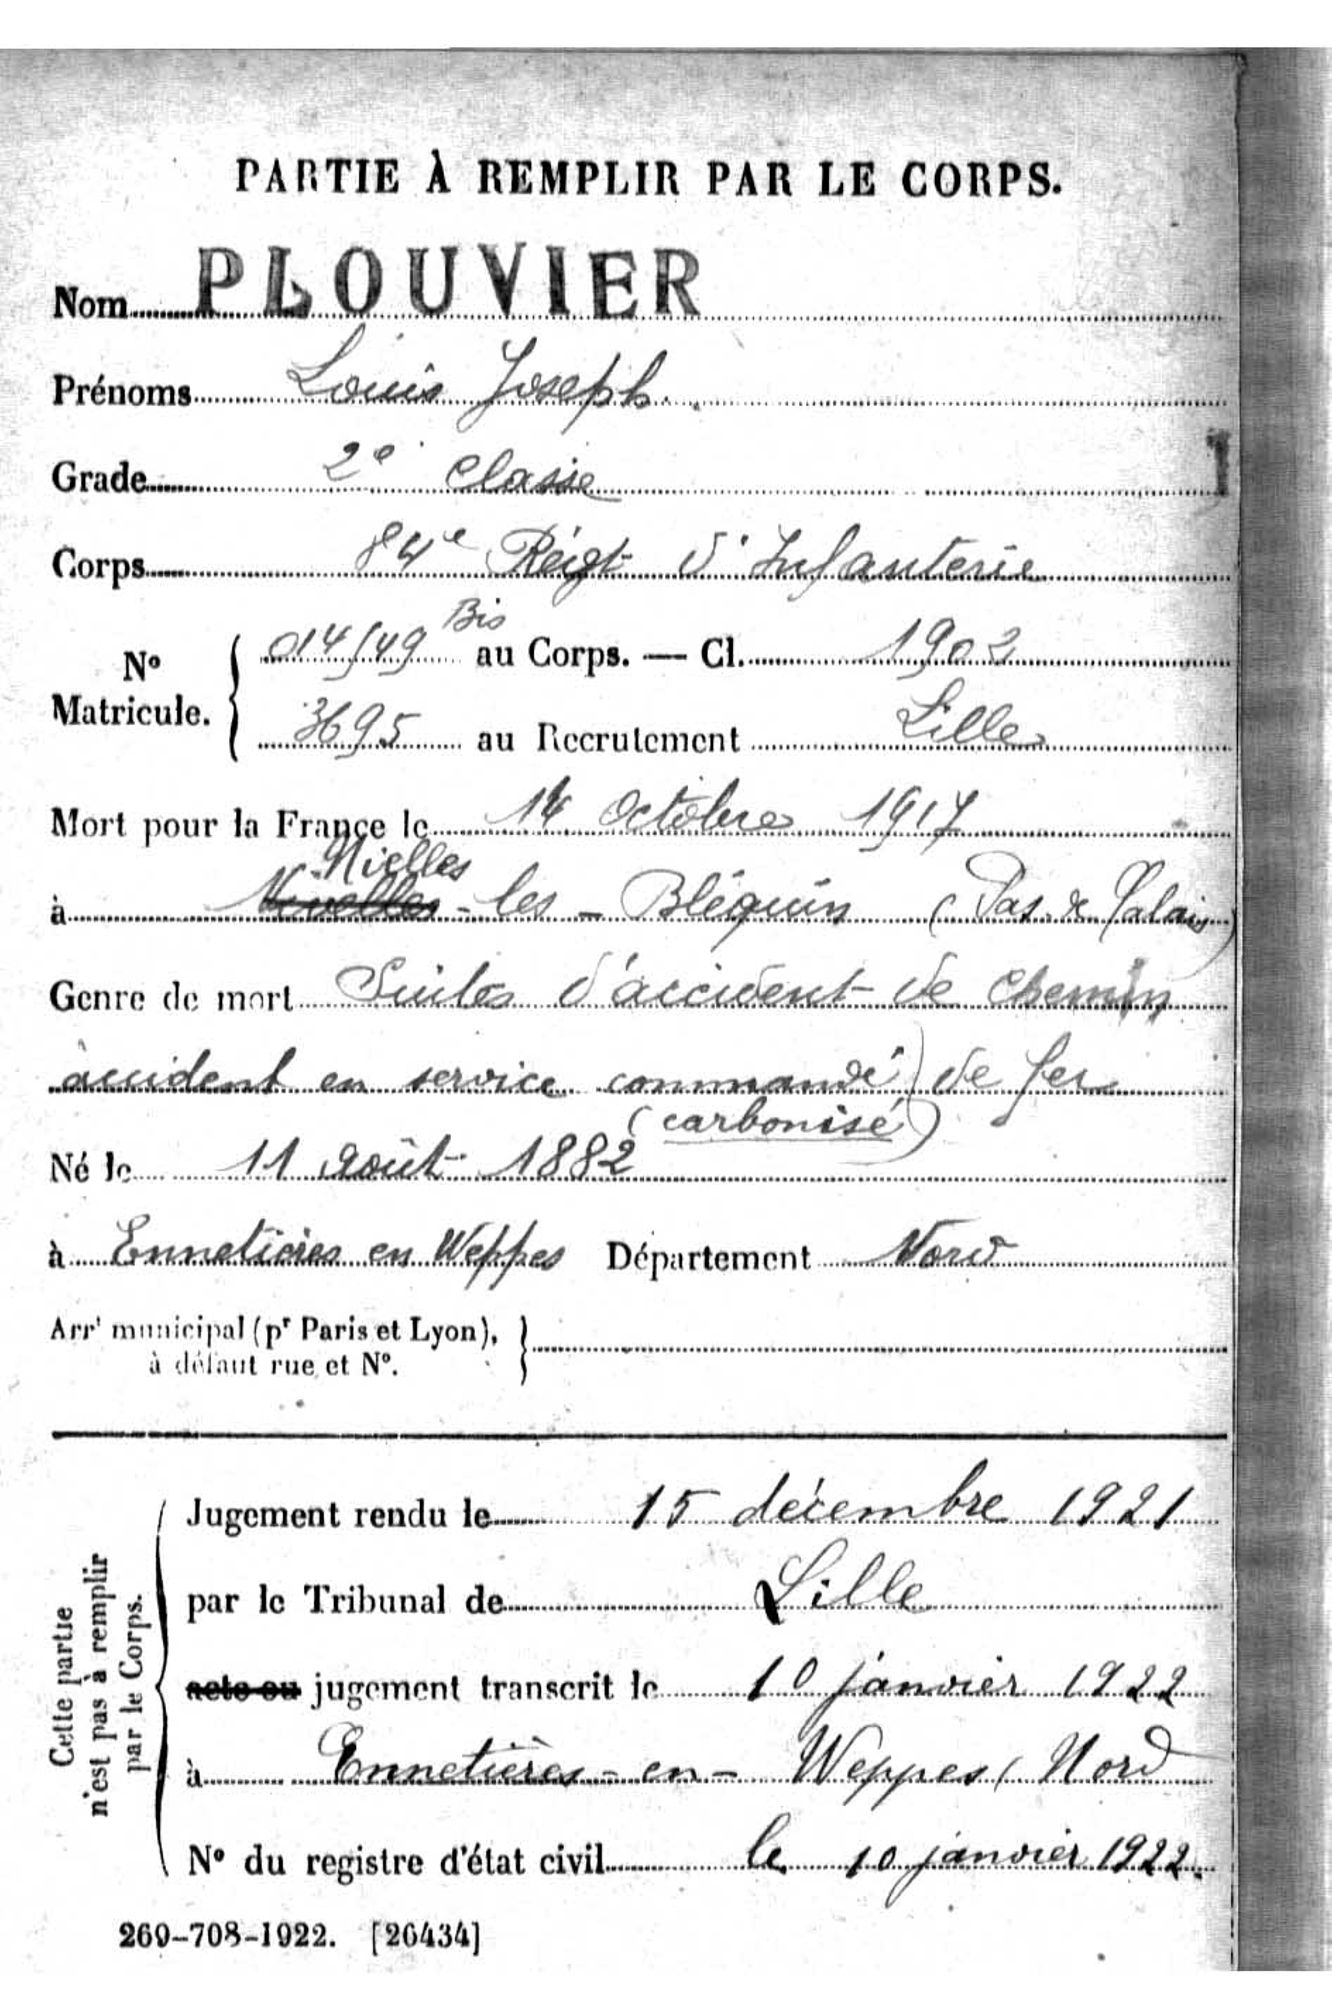 PARTIE À REMPLIR PAR LE CORPS.
Nom PLOUVIER
Prénoms Louis Joseph.
Grade 2e classe
Corps 84e Régt d'Infanterie
No Matricule. 014/49 Bis au Corps. — Cl. 1902
3695 au Recrutement Lille
Mort pour la France le 14 Octobre 1917
Nielles
à Nouelles - les - Bléquin (Pas de Calais)
Genre de mort Suites d'accident de Chemin
accident en service commandé) de fer
(carbonisé)
Né le 11 août 1882
à Ennetières en Weppes Département Nord
Arrt municipal (pr Paris et Lyon),
à défaut rue et No.
Cette partie
n'est pas à remplir
par le Corps.
Jugement rendu le 15 décembre 1921
par le Tribunal de Lille
acte ou jugement transcrit le 10 janvier 1922
à Ennetières - en - Weppes (Nord
No du registre d'état civil le 10 janvier 1922.
269-708-1922. [26434]